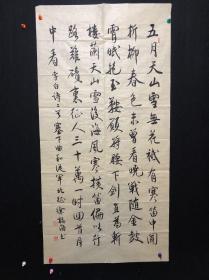 五月天山雪無花祇有寒笛中聞
折柳春色未曾看曉戰隨金鼓
宵眠抱玉鞍願將腰下劍直為斬
樓蘭天山雪後海風寒橫笛偏吹行
路難磧裏征人三十萬一時回首月
中看 李白詩二首塞下曲和從軍北征